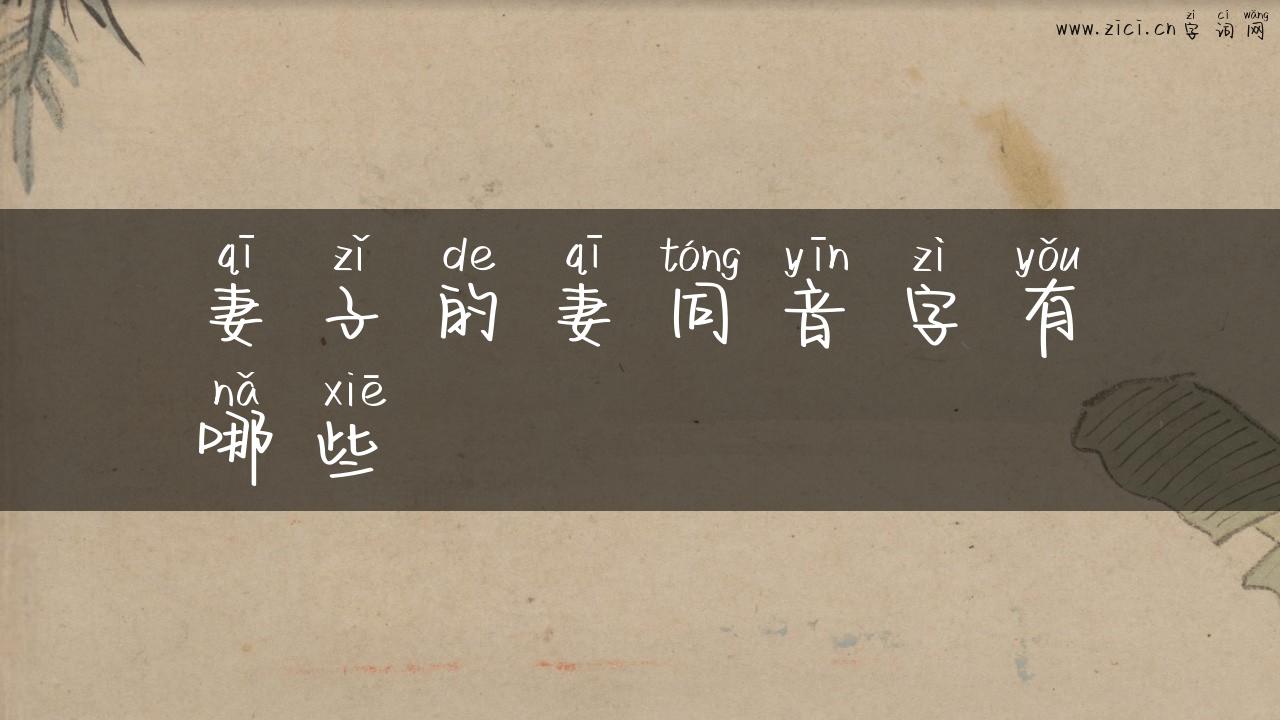 zì cí wǎng
www.zici.cn 字词网
qī zǐ de qī tóng yīn zì yǒu
妻子的妻同音字有
nǎ xiē
哪些